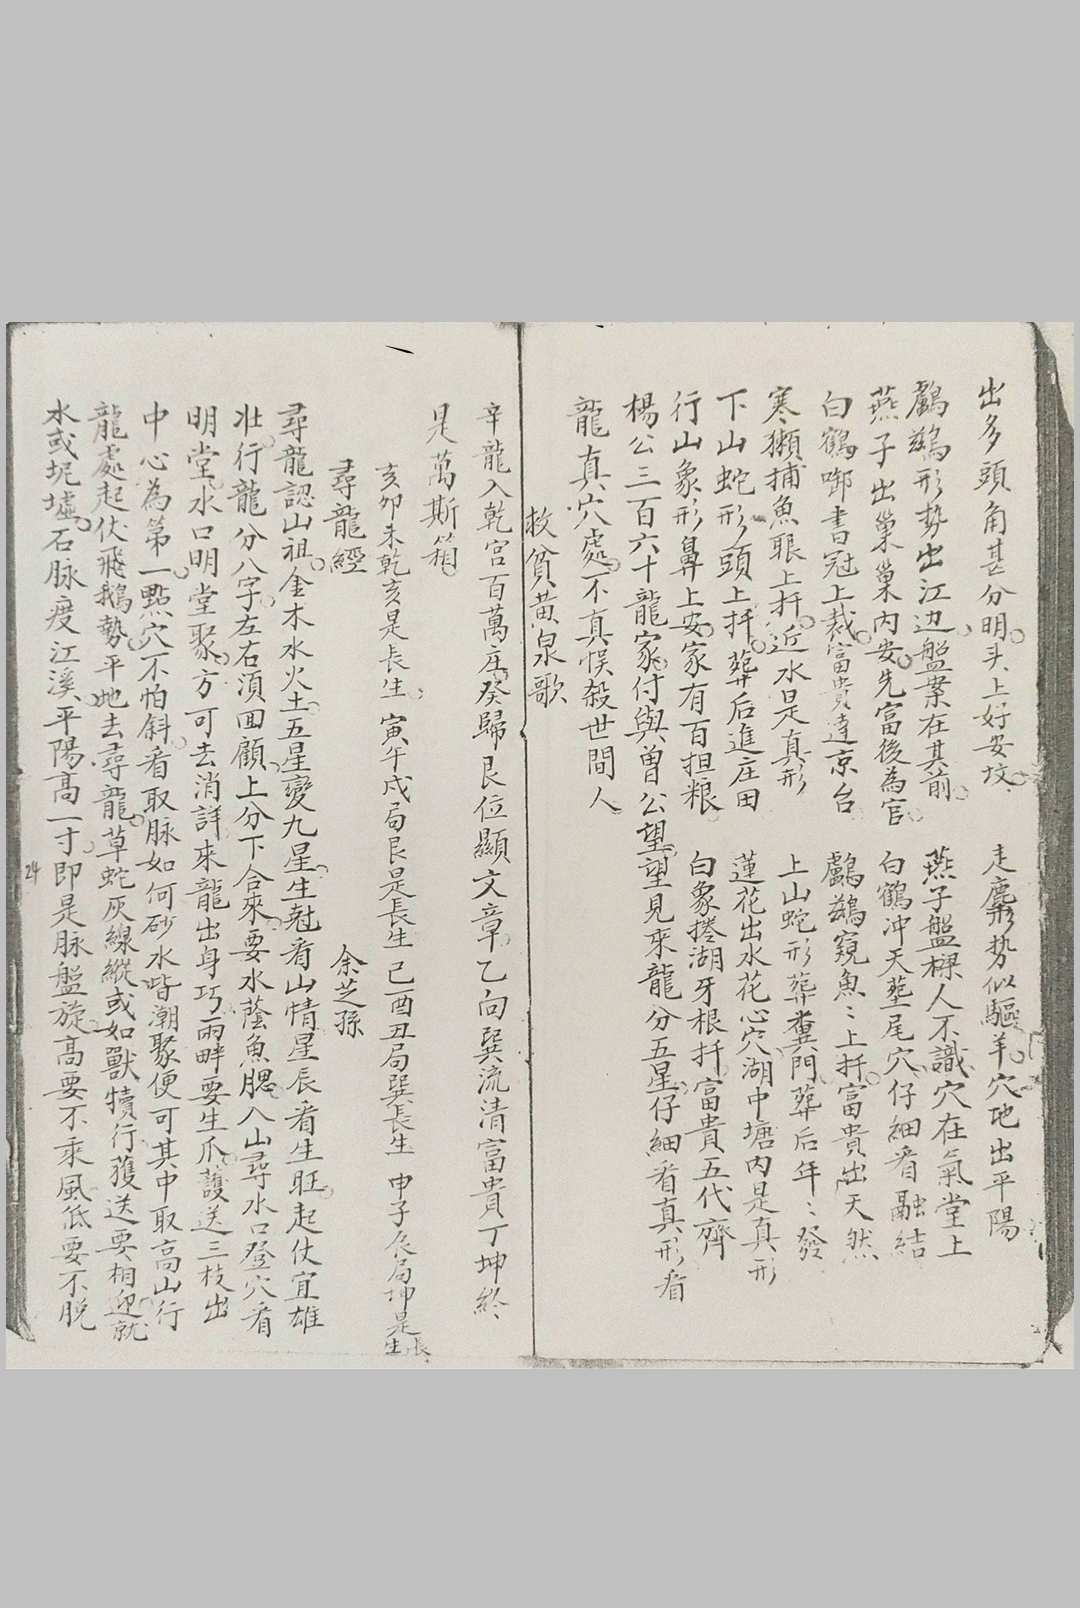 出多頭角甚分明头上好安坟　走麞势似驅羊穴地出平陽
鸕鷀形势出江边盤案在其前　燕子盤樑人不識穴在氣堂上
燕子出巢巢内安先富後為官　白鶴冲天塟尾穴仔細看融結
白鶴啣書冠上裁富貴達京台　鸕鷀窺魚〻上扦富貴出天然
寒獺捕魚眼上扦近水是真形　上山蛇形葬糞門葬后年〻發
下山蛇形頭上扦葬后進庄田　蓮花出水花心穴湖中塘内是真形
行山象形鼻上安家有百担粮　白象捲湖牙根扦富貴五代齊
楊公三百六十龍家付與曾公望望見來龍分五星仔細看真形看
龍真穴處不真悮殺世間人
救貧黄泉歌
辛龍入乾宫百萬庄癸歸艮位顯文章乙向巽流清富貴丁坤終
是萬斯箱
亥卯未乾亥是長生　寅午戌局艮是長生　巳酉丑局巽長生　申子辰局坤是長生
尋龍經　余芝孫
尋龍認山祖金木水火土五星變九星生尅看山情星辰看生旺起伏宜雄
壮行龍分八字左右湏囬顧上分下合來要水蔭魚腮入山尋水口登穴看
明堂水口明堂聚方可去消詳來龍出身巧兩畔要生爪護送三枝出
中心為第一點穴不怕斜看取脉如何砂水皆潮聚便可其中取高山行
龍處起伏飛鵝勢平地去尋龍草蛇灰線縱或如獸犢行護送要相迎就
水或坭墟石脉度江溪平陽高一寸即是脉盤旋高要不乘風低要不脱